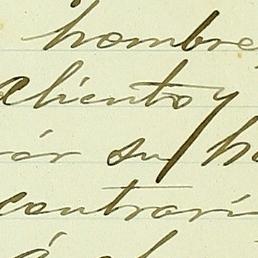 hombre
aliento y
ár su ha
contrari